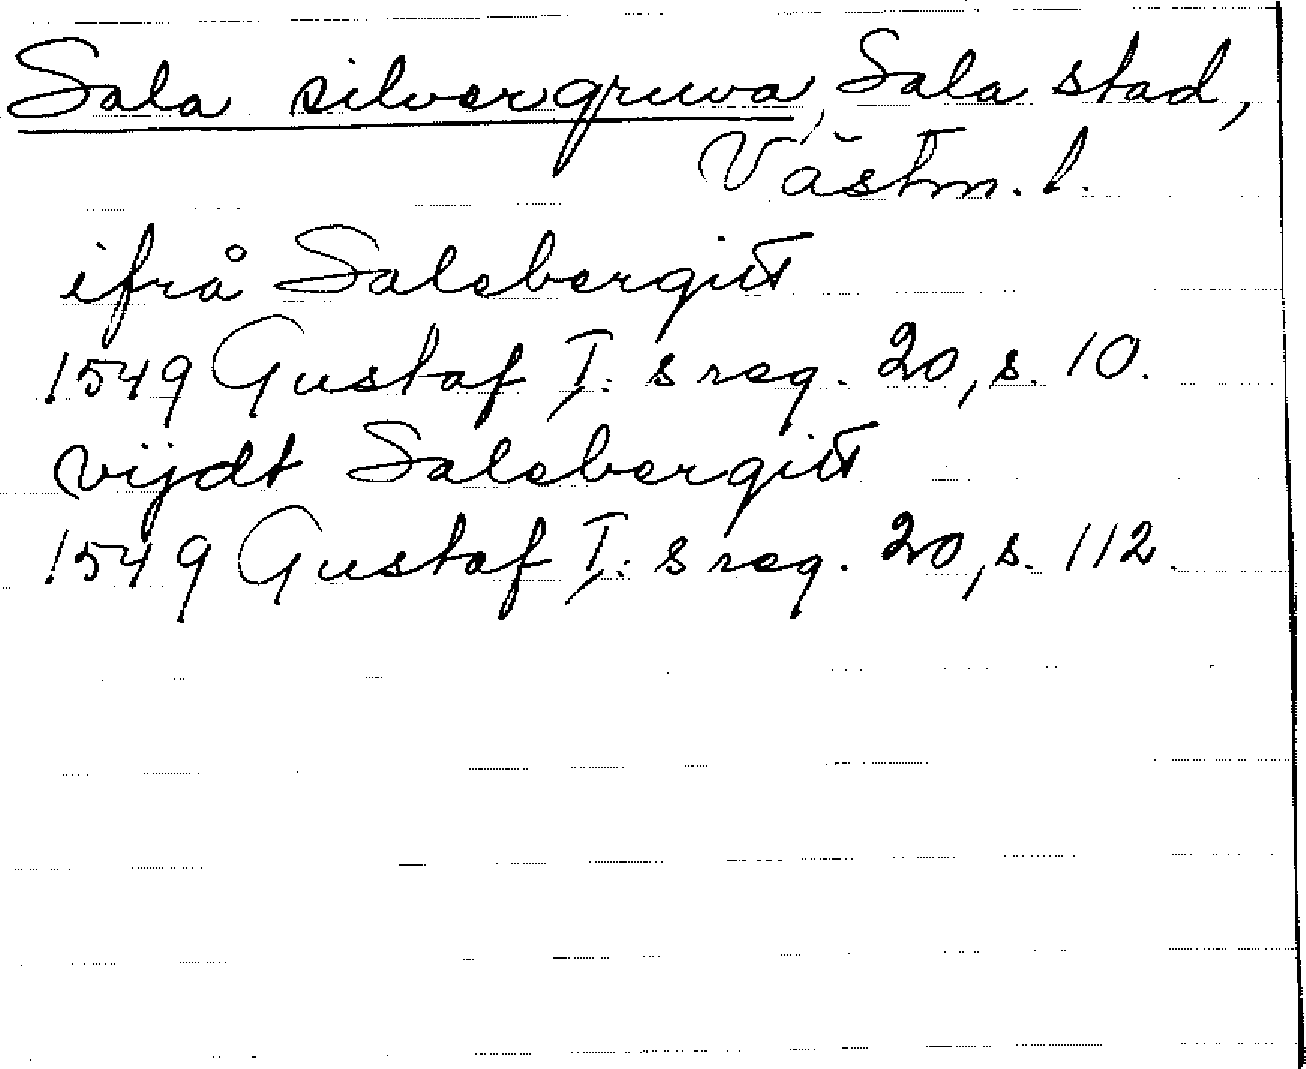 Sala silvergruva, Sala stad,
Västm. l.
ifrå Salebergitt
1549 Gustaf I:s reg. 20, s. 10.
vijdt Salebergitt
1549 Gustaf I:s reg. 20, s. 112.